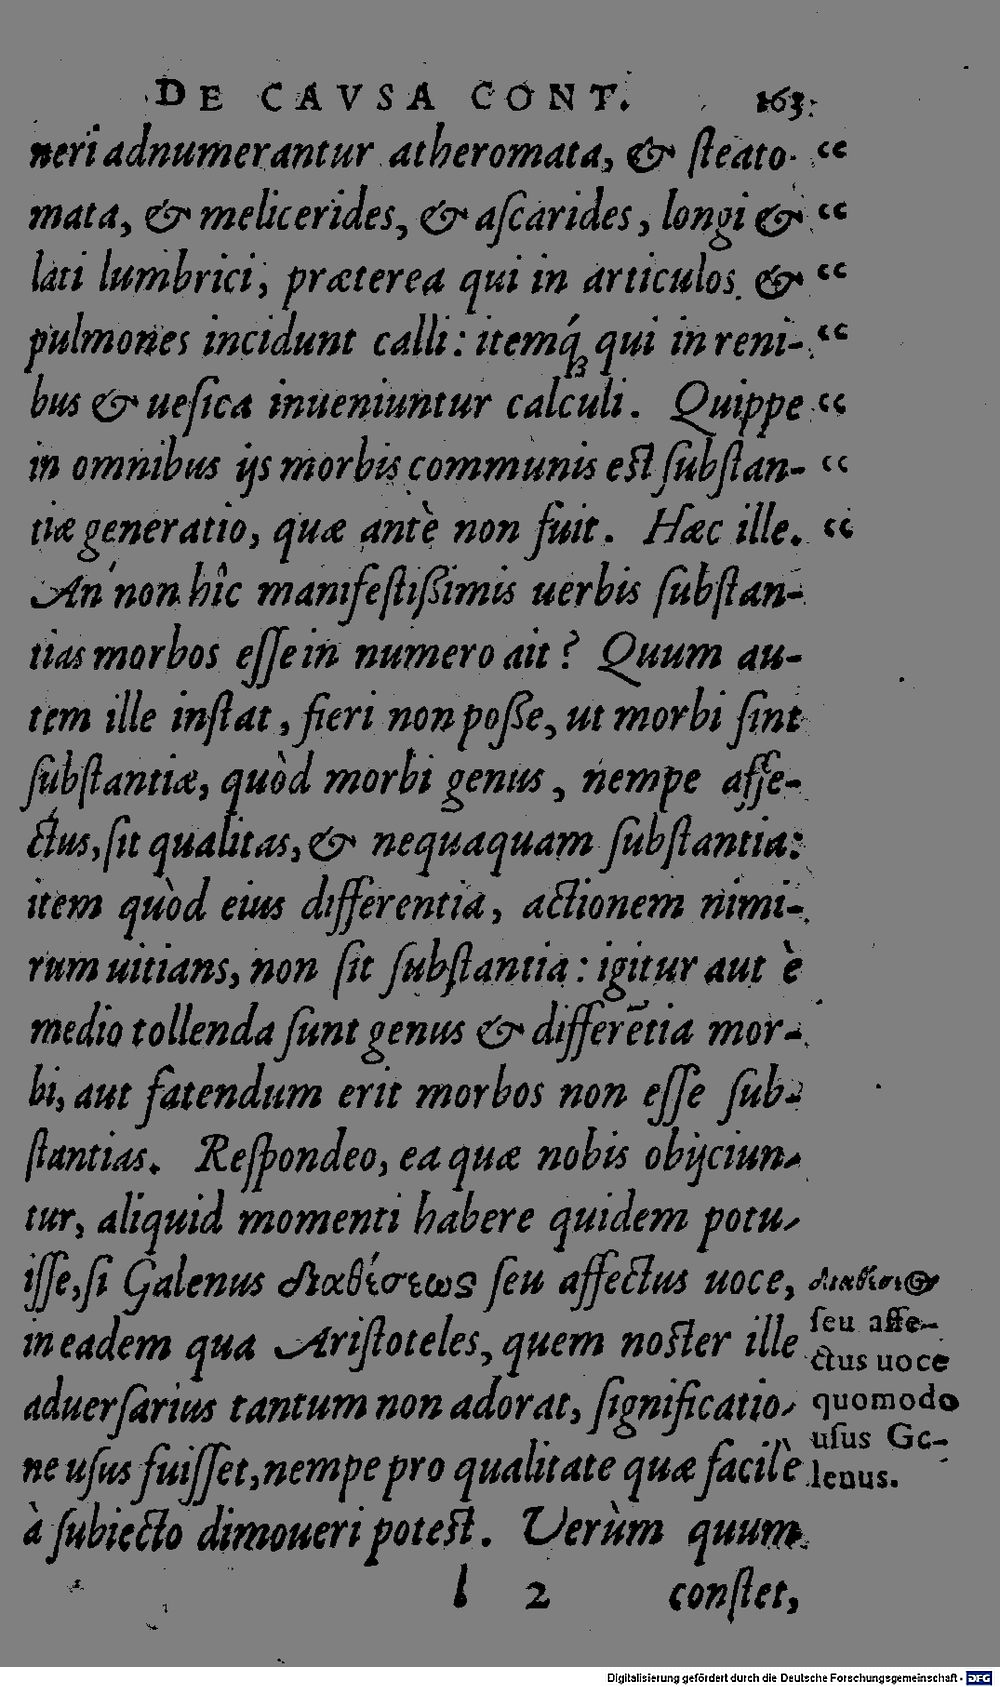 DE CAVSA CONT. 163.
neri adnumerantur atheromata, & ſteato- “
mata, & melicerides, & aſcarides, longi & “
lati lumbrici, præterea qui in articulos & “
pulmones incidunt calli: itemq́ꝫ qui in reni- “
bus & ueſica inueniuntur calculi. Quippe “
in omnibus ijs morbis communis est ſubſtan- “
tiæ generatio, quæ antè non fuit. Hæc ille. “
An non hîc manifeſtißimis uerbis ſubſtan-
tias morbos eſſe in numero ait? Quum au-
tem ille inſtat, fieri non poße, ut morbi ſint
ſubſtantiæ, quòd morbi genus, nempe affe-
ctus, ſit qualitas, & nequaquam ſubſtantia:
item quòd eius differentia, actionem nimi-
rum uitians, non ſit ſubſtantia: igitur aut è
medio tollenda ſunt genus & differẽtia mor-
bi, aut fatendum erit morbos non eſſe ſub-
ſtantias. Reſpondeo, ea quæ nobis obijciun-
tur, aliquid momenti habere quidem potu-
iſſe, ſi Galenus διαθέσεως ſeu affectus uoce,
in eadem qua Ariſtoteles, quem noster ille
aduerſarius tantum non adorat, ſignificatio-
ne uſus fuiſſet, nempe pro qualitate quæ facilè
à ſubiecto dimoueri potest. Verùm quum
διαθέσι@
ſeu affe-
ctus uoce
quomodo
uſus Ge-
lenus.
l 2 conſtet,
Digitalisierung gefördert durch die Deutsche Forschungsgemeinschaft - DFG